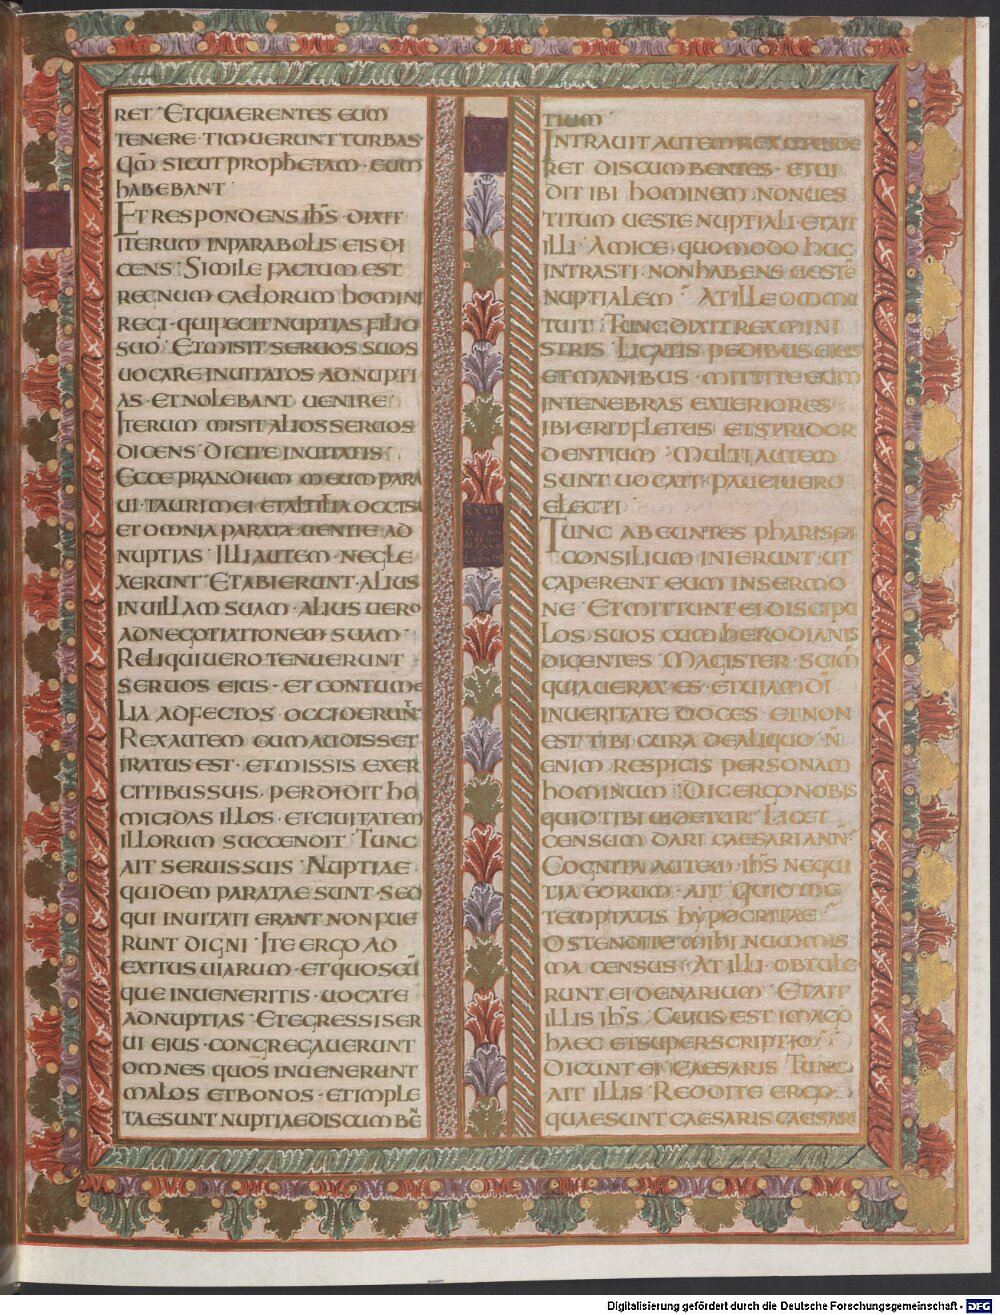 RET · ET QUAERENTES EUM
TENERE · TIMUERUNT TURBAS
QM̄ SICUT PROPHETAM · EUM
HABEBANT
ET RESPONDENS IH̄S · DIXIT
ITERUM INPARABOLIS EIS DI
CENS · SIMILE FACTUM EST
REGNUM CAELORUM HOMINI
REGI · QUI FECIT NUPTIAS FILIO
SUO · ET MISIT SERUOS SUOS
UOCARE INUITATOS AD NUPTI
AS · ET NOLEBANT UENIRE
ITERUM MISIT ALIOS SERUOS
DICENS · DICITE INUITATIS
ECCE PRANDIUM MEUM PARA
UI · TAURI MEI ET ALTILIA OCCISA
ET OMNIA PARATA UENITE AD
NUPTIAS · ILLI AUTEM · NEGLE
XERUNT · ET ABIERUNT · ALIUS
IN UILLAM SUAM · ALIUS UERO
AD NEGOTIATIONEM SUAM ·
RELIQUI UERO TENUERUNT
SERUOS EIUS · ET CONTUME
LIA ADFECTOS · OCCIDERUNT
REX AUTEM CUM AUDISSET
IRATUS EST · ET MISSIS EXER
CITIBUS SUIS · PERDIDIT HO
MICIDAS ILLOS · ET CIUITATEM
ILLORUM SUCCENDIT · TUNC
AIT SERUIS SUIS · NUPTIAE
QUIDEM PARATAE SUNT · SED
QUI INUITATI ERANT NON FUE
RUNT DIGNI · ITE ERGO AD
EXITUS UIARUM · ET QUOSCŪ
QUE INUENERITIS · UOCATE
AD NUPTIAS · ET EGRESSI SER
UI EIUS · CONGREGAUERUNT
OMNES QUOS INUENERUNT
MALOS ET BONOS · ET IMPLE
TAE SUNT NUPTIAE DISCUMBĒ
TIUM
INTRAUIT AUTEM REX UT UIDE
RET DISCUMBENTES · ET UI
DIT IBI HOMINEM NON UES
TITUM UESTE NUPTIALI · ET AIT
ILLI · AMICE · QUOMODO HUC
INTRASTI · NON HABENS UESTĒ
NUPTIALEM · AT ILLE OMMU
TUIT · TUNC DIXIT REX MINI
STRIS · LIGATIS PEDIBUS EIUS
ET MANIBUS · MITTITE EUM
IN TENEBRAS EXTERIORES
IBI ERIT FLETUS ET STRIDOR
DENTIUM · MULTI AUTEM
SUNT UOCATI · PAUCI UERO
ELECTI
TUNC ABEUNTES PHARISEI
CONSILIUM INIERUNT · UT
CAPERENT EUM IN SERMO
NE · ET MITTUNT EI DISCIPU
LOS SUOS CUM HERODIANIS
DICENTES · MAGISTER · SCIM̄
QUIA UERAX ES · ET UIAM DĪ
IN UERITATE DOCES · ET NON
EST TIBI CURA DE ALIQUO · N̄
ENIM RESPICIS PERSONAM
HOMINUM · DIC ERGO NOBIS
QUID TIBI UIDETUR · LICET
CENSUM DARI CAESARI ANN̄
COGNITA AUTEM · IH̄S NEQUI
TIA EORUM · AIT · QUID ME
TEMPTATIS HYPOCRITAE
OSTENDITE MIHI NUMMIS
MA CENSUS · AT ILLI · OBTULE
RUNT EI DENARIUM · ET AIT
ILLIS IH̄S · CUIUS EST IMAGO
HAEC ET SUPERSCRIPTIO
DICUNT EI · CAESARIS · TUNC
AIT ILLIS · REDDITE ERGO
QUAE SUNT CAESARIS CAESARI
Digitalisierung gefördert durch die Deutsche Forschungsgemeinschaft - DFG